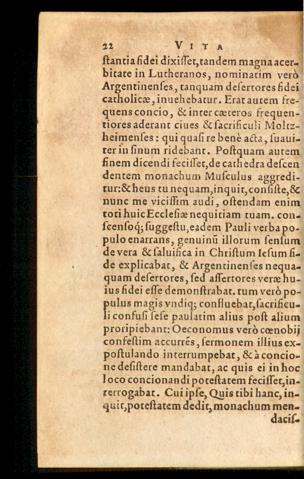 22 VITA
stantia fidei dixisset, tandem magna acer-
bitate in Lutheranos, nominatim verò
Argentinenses, tanquam desertores fidei
catholicæ, inuehebatur. Erat autem fre-
quens concio, & inter cæteros frequen-
tiores aderant ciues & sacrificuli Moltz-
heimenses: qui quasi re benè acta, suaui-
ter in sinum ridebant. Postquam autem
finem dicendi fecisset, de cathedra descen
dentem monachum Musculus aggredi-
tur: & heus tu nequam, inquit, consiste, &
nunc me vicissim audi, ostendam enim
toti huic Ecclesiæ nequitiam tuam. con-
scensoq; suggestu, eadem Pauli verba po-
pulo enarrans, genuinū illorum sensum
de vera & saluifica in Christum Iesum fi-
de explicabat, & Argentinenses nequa-
quam desertores, sed assertores veræ hu-
ius fidei esse demonstrabat. tum verò po-
pulus magis vndiq; confluebat, sacrificu-
li confusi sese paulatim alius post alium
proripiebant: Oeconomus verò cœnobij
confestim accurrēs, sermonem illius ex-
postulando interrumpebat, & à concio-
ne desistere mandabat, ac quis ei in hoc
loco concionandi potestatem fecisset, in-
terrogabat. Cui ipse, Quis tibi hanc, in-
quit, potestatem dedit, monachum men-
dacis-